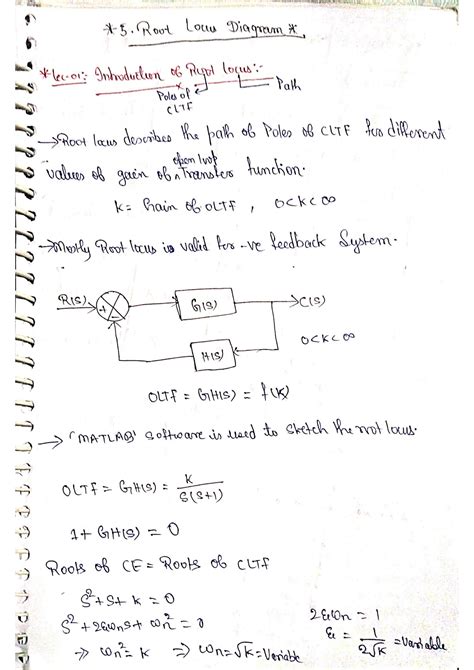 *5. Root Locus Diagram *
* Lec-01: Introduction of Root locus:-
Poles of CLTF
Path
→ Root locus describes the path of Poles of CLTF for different
values of gain of open loop Transfer function.
K = Gain of OLTF , 0<K<∞
→ Mostly Root locus is valid for -ve feedback System.
R(S) + - G(S) → C(S)
H(S) 0<K<∞
OLTF = GH(S) = f(K)
→ 'MATLAB' Software is used to sketch the root locus.
OLTF = GH(S) = K / S(S+1)
1 + GH(S) = 0
Roots of CE = Roots of CLTF
S² + S + K = 0
S² + 2ξωnS + ωn² = 0
⇒ ωn² = K ⇒ ωn = √K = Variable
2ξωn = 1
ξ = 1 / 2√K = Variable